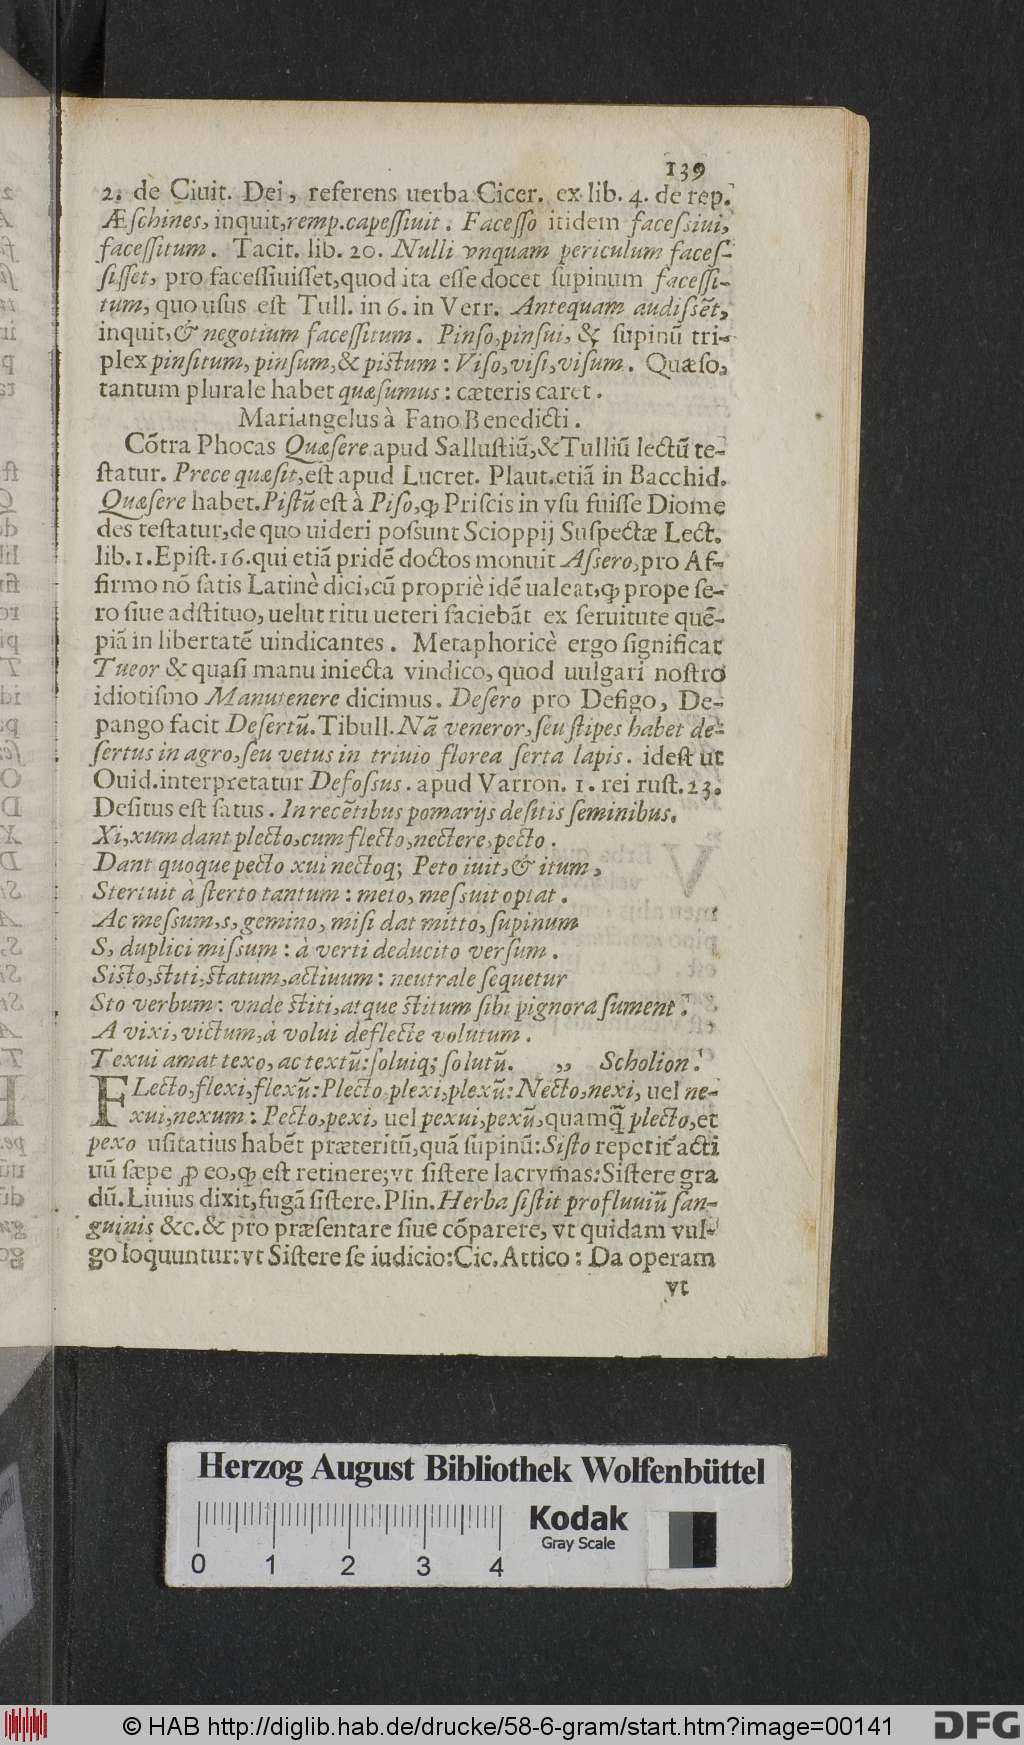 139
2. de Ciuit. Dei, referens uerba Cicer. ex lib. 4. de rep.
Æſchines, inquit, remp. capeſſiuit. Faceſſo itidem faceſsiui,
faceſſitum. Tacit. lib. 20. Nulli vnquam periculum faceſ-
ſiſſet, pro faceſſiuiſſet, quod ita eſſe docet ſupinum faceſſi-
tum, quo uſus eſt Tull. in 6. in Verr. Antequam audiſsẽt,
inquit, & negotium faceſſitum. Pinſo, pinſui, & ſupinũ tri-
plex pinſitum, pinſum, & piſtum: Viſo, viſi, viſum. Quæſo,
tantum plurale habet quæſumus: cæteris caret.
Mariangelus à Fano Benedicti.
Cõtra Phocas Quæſere apud Salluſtiũ, & Tulliũ lectũ te-
ſtatur. Prece quæſit, eſt apud Lucret. Plaut. etiã in Bacchid.
Quæſere habet. Piſtũ eſt à Piſo, ꝙ Priſcis in vſu fuiſſe Diome
des teſtatur, de quo uideri poſsunt Scioppij Suſpectæ Lect.
lib. 1. Epiſt. 16. qui etiã pridẽ doctos monuit Aſsero, pro Af-
firmo nõ ſatis Latinè dici, cũ propriè idẽ ualeat, ꝙ prope ſe-
ro ſiue adſtituo, uelut ritu ueteri faciebãt ex ſeruitute quẽ-
piã in libertatẽ uindicantes. Metaphoricè ergo ſignificat
Tueor & quaſi manu iniecta vindico, quod uulgari noſtro
idiotiſmo Manutenere dicimus. Deſero pro Defigo, De-
pango facit Deſertũ. Tibull. Nã veneror, ſeu ſtipes habet de-
ſertus in agro, ſeu vetus in triuio florea ſerta lapis. ideſt ut
Ouid. interpretatur Defoſsus. apud Varron. 1. rei ruſt. 23.
Deſitus eſt ſatus. In recẽtibus pomarijs deſitis ſeminibus.
Xi, xum dant plecto, cum flecto, nectere, pecto.
Dant quoque pecto xui nectoq; Peto iuit, & itum,
Stertuit à ſterto tantum: meto, meſsuit optat.
Ac meſsum, s, gemino, miſi dat mitto, ſupinum
S, duplici miſsum: à verti deducito verſum.
Siſto, ſtiti, ſtatum, actiuum: neutrale ſequetur
Sto verbum: vnde ſtiti, atque ſtitum ſibi pignora ſument.
A vixi, victum, à volui deflecte volutum.
Texui amat texo, ac textũ: ſoluiq; ſolutũ. „ Scholion.
FLecto, flexi, flexũ: Plecto plexi, plexũ: Necto, nexi, uel ne-
xui, nexum: Pecto, pexi, uel pexui, pexũ, quamq̃ plecto, et
pexo uſitatius habẽt præteritũ, quã ſupinũ: Siſto reperit᷑ acti
uũ ſæpe ꝓ eo, ꝙ eſt retinere; vt ſiſtere lacrymas: Siſtere gra
dũ. Liuius dixit, fugã ſiſtere. Plin. Herba ſiſtit profluuiũ ſan-
guinis &c. & pro præſentare ſiue cõparere, vt quidam vul-
go loquuntur: vt Siſtere ſe iudicio: Cic. Attico: Da operam
vt
Herzog August Bibliothek Wolfenbüttel
0 1 2 3 4
Kodak
Gray Scale
© HAB http://diglib.hab.de/drucke/58-6-gram/start.htm?image=00141
DFG